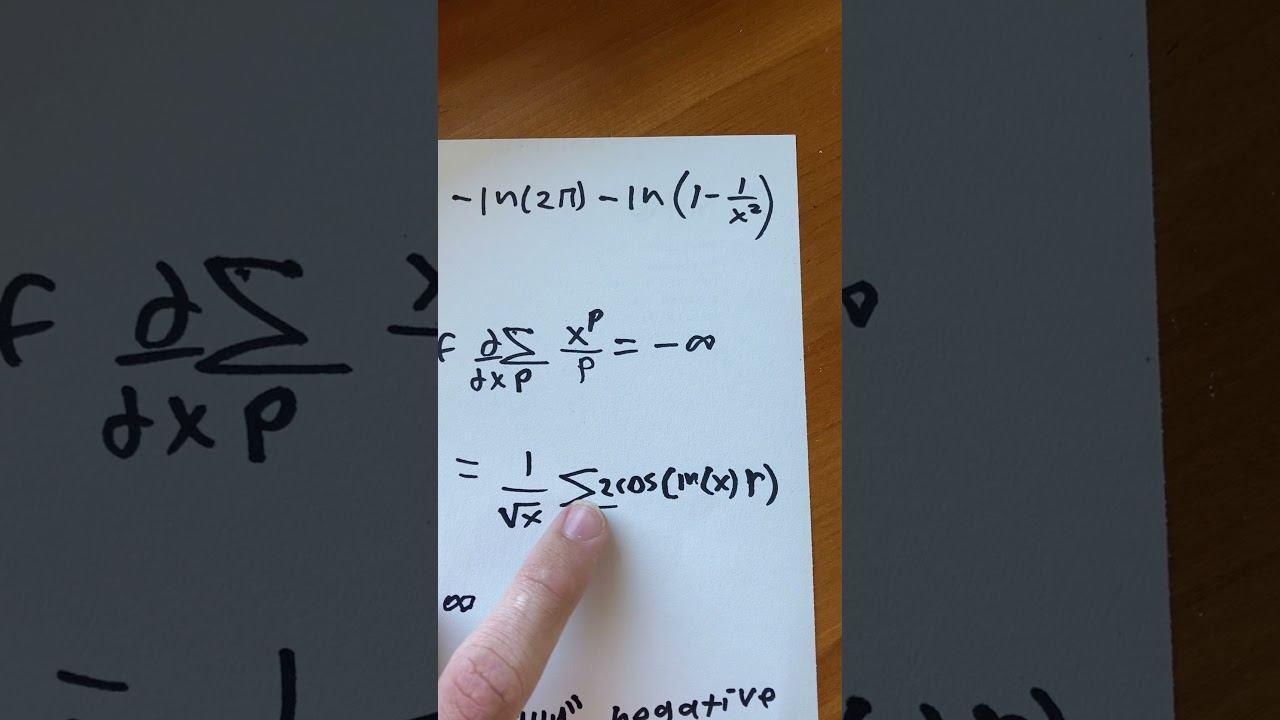 -ln(2π) - ln(1 - 1/x²)
f d/dx Σ_p x^p/p = -∞
= 1/√x Σ 2cos(ln(x)r)
∞
negative